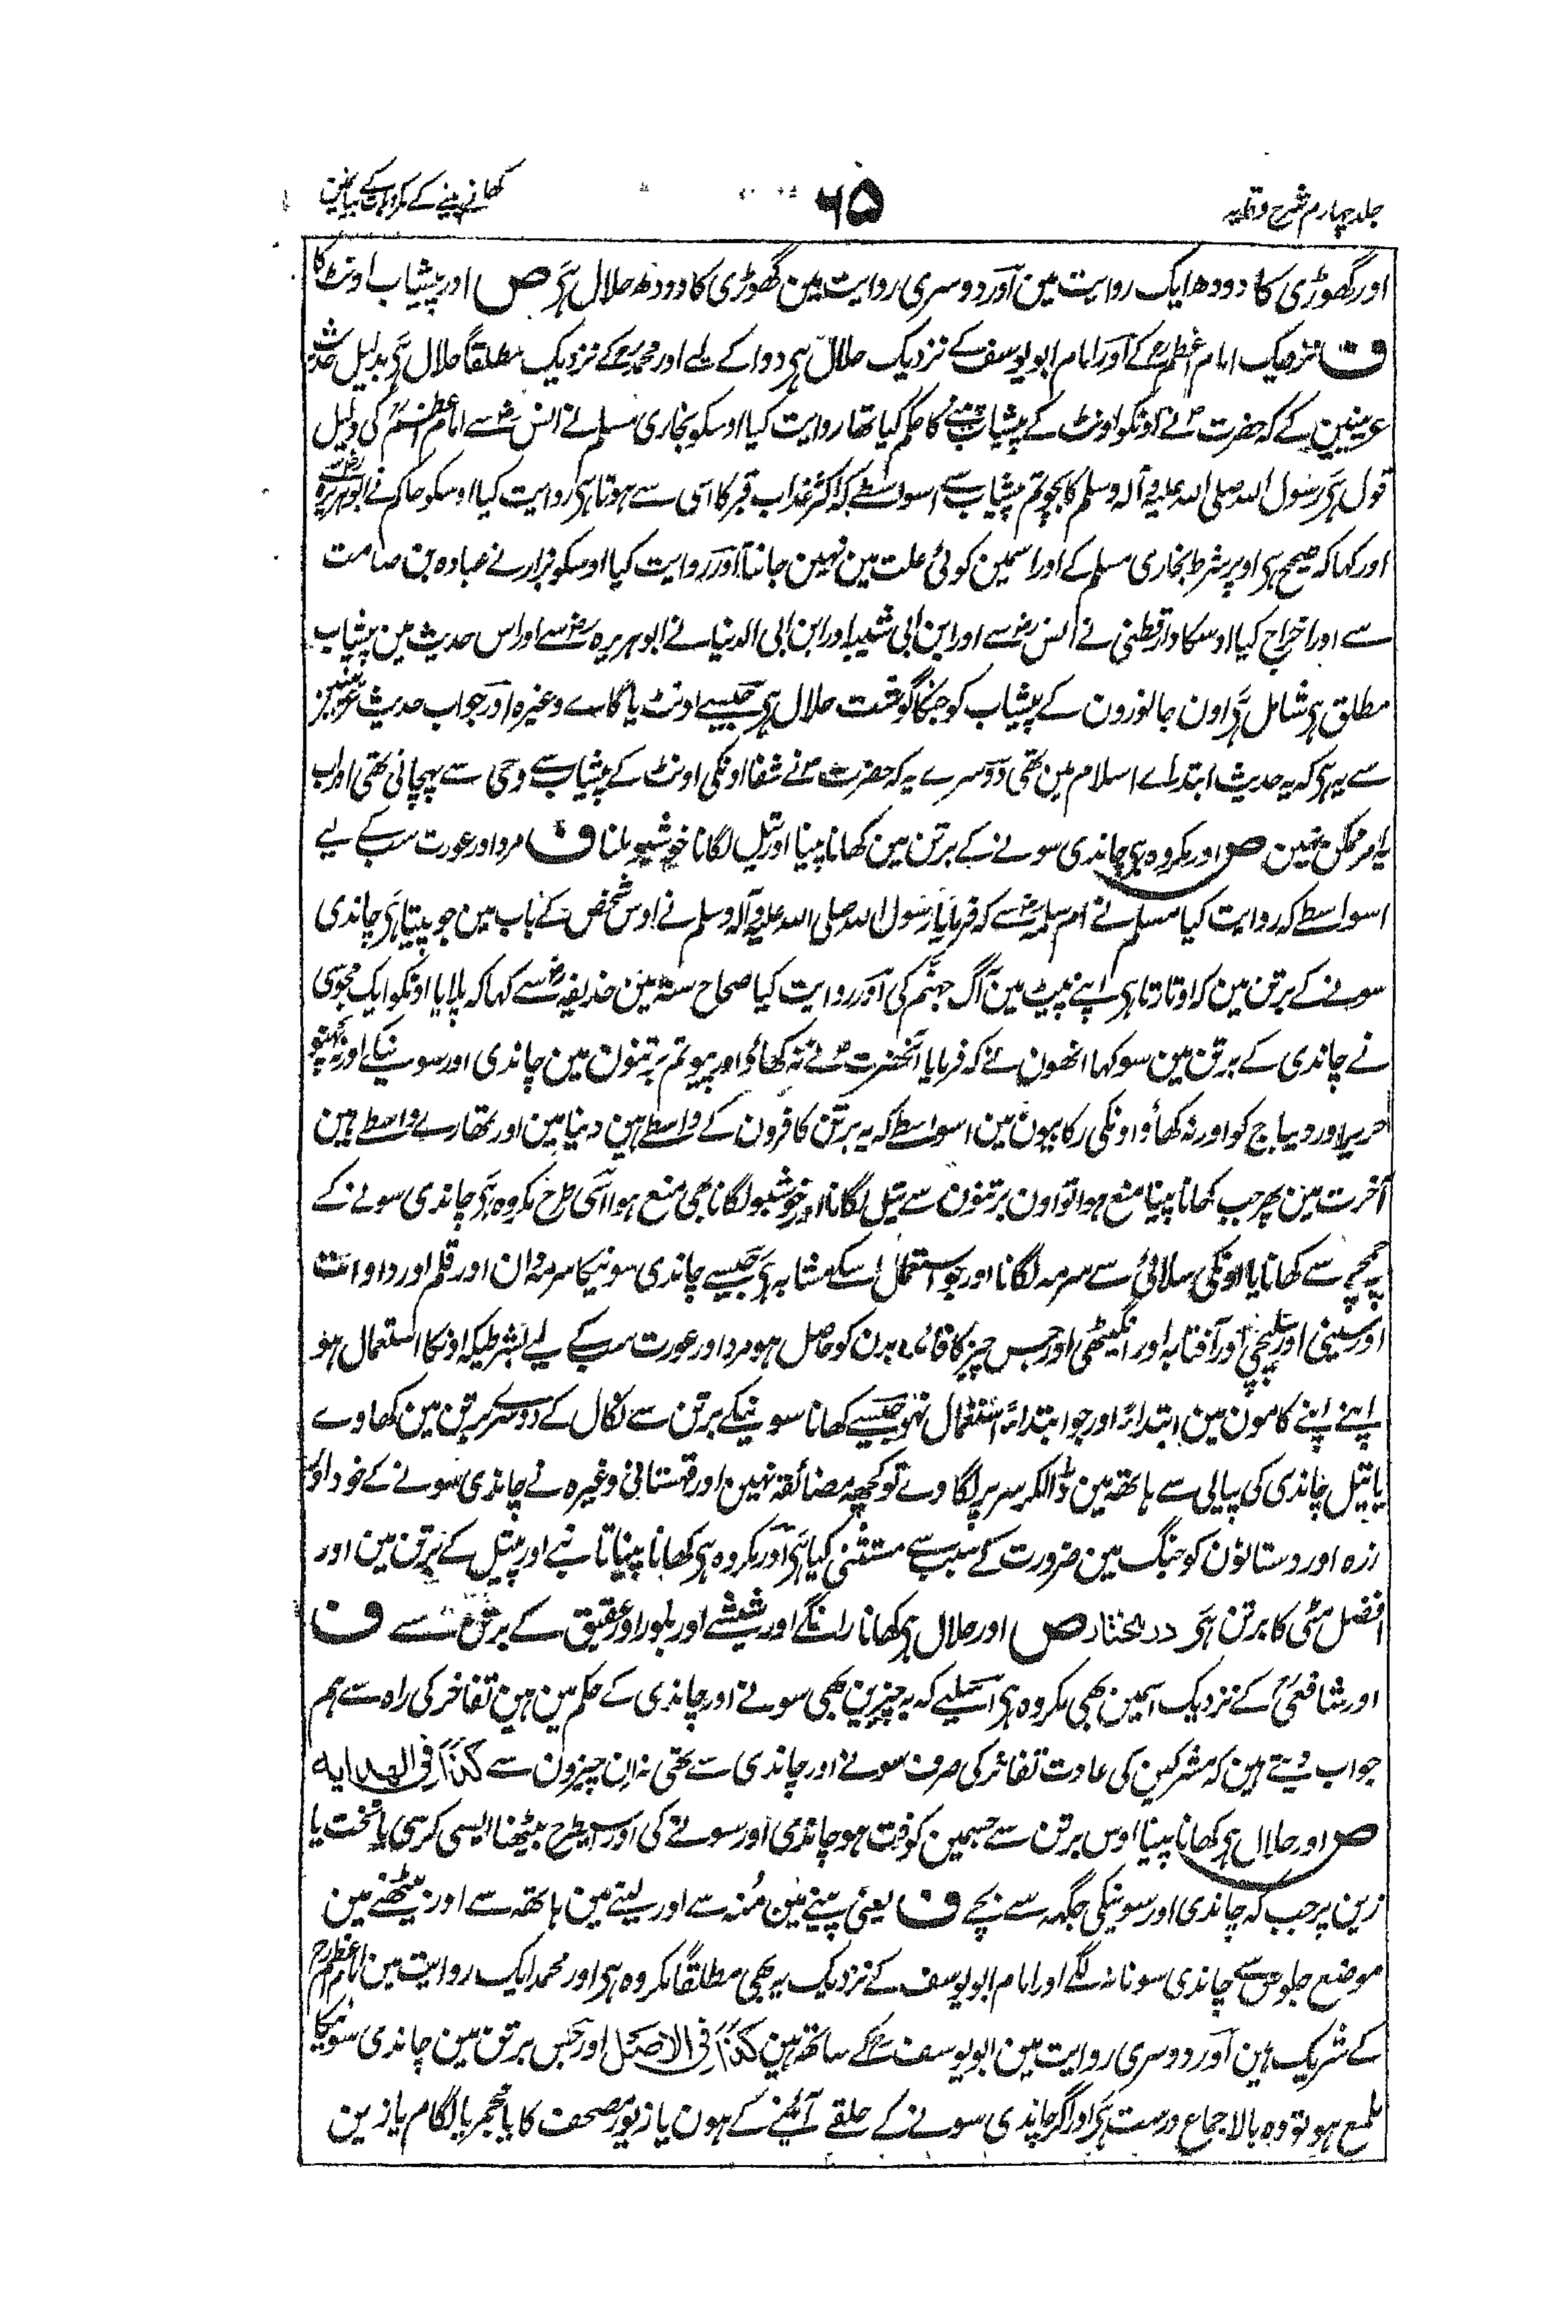 جلد چہارم شرح وقایہ
۶۵
کھانے پینے کے مکروہات کے بیان مین
اور گھوڑی کا دودھ ایک روایت مین اور دوسری روایت مین گھوڑی کا دودھ حلال ہی ص اور پیشاب اونٹ کا
ف نزدیک امام اعظمؒ کے اور امام ابو یوسف کے نزدیک حلال ہی دوا کے لیے اور محمدؒ کے نزدیک مطلقاً حلال ہی بدلیل حدیث
عرینیین کے کہ حضرت ؐ نے اونکو اونٹ کے پیشاب پینے کا حکم کیا تھا روایت کیا اوسکو بخاری مسلم نے انسؓ سے امام اعظمؒ کی دلیل
قول ہی رسول اللہ صلی اللہ علیہ وآلہ وسلم کا بچو تم پیشاب سے اسواسطے کہ اکثر عذاب قبر کا اسی سے ہوتا ہی روایت کیا اوسکو حاکم نے ابوہریرہ رضؓ سے
اور کہا کہ صحیح ہی اوپر شرط بخاری مسلم کے اور اسمین کوئی علت مین نہین جانتا اور روایت کیا اوسکو بزار نے عبادہ بن صامت
سے اور اخراج کیا اوسکا دارقطنی نے انسؓ سے اور ابن ابی شیبہ اور ابن ابی الدنیا نے ابوہریرہؓ سے اور اس حدیث مین پیشاب
مطلق ہی شامل ہی اون جانورون کے پیشاب کو جنکا گوشت حلال ہی جیسے اونٹ یا گائے وغیرہ اور جواب حدیث عرینیین
سے یہ ہی کہ یہ حدیث ابتداے اسلام مین تھی دوسرے یہ کہ حضرتؐ نے شفا اونکی اونٹ کے پیشاب سے وحی سے پہچانی تھی اور اب
یہ امر ممکن نہین ص اور مکروہ ہی چاندی سونے کے برتن مین کھانا پینا اور تیل لگانا خوشبو ملنا ف مرد اور عورت سب کے لیے
اسواسطے کہ روایت کیا مسلم نے ام سلمہؓ سے کہ فرمایا رسول اللہ صلی اللہ علیہ وآلہ وسلم نے اوس شخص کے باب مین جو پیتا ہی چاندی
سونے کے برتن مین کہ اوتارتا ہی اپنے پیٹ مین آگ جہنم کی اور روایت کیا صحاح ستہ مین حذیفہؓ سے کہا کہ پلایا اونکو ایک مجوسی
نے چاندی کے برتن مین سو کہا انھون نے کہ فرمایا آنحضرتؐ نے نہ کھاؤ اور پیو تم برتنون مین چاندی اور سونیکے اور نہ پہنو
حریر اور دیباج کو اور نہ کھاؤ اونکی رکابیون مین اسواسطے کہ یہ برتن کافرون کے واسطے ہین دنیا مین اور تمھارے واسطے ہین
آخرت مین پھر جب کھانا پینا منع ہوا تو اون برتنون سے تیل لگانا اور خوشبو لگانا بھی منع ہوا اسی طرح مکروہ ہی چاندی سونے کے
چمچے سے کھانا یا اونکی سلائی سے سرمہ لگانا اور جو استعمال اسکے مشابہ ہی جیسے چاندی سونیکا سرمہ دان اور قلم اور داوات
اور سینی اور سلپچی اور آفتابہ اور انگیٹھی اور جس چیز کا فائدہ بدن کو حاصل ہو مرد اور عورت سب کے لیے بشرطیکہ اونکا استعمال ہو
اپنے اپنے کامون مین ابتداءً اور جو ابتداءً استعمال نہو جیسے کھانا سونیکے برتن سے نکال کے دوسرے برتن مین کھاوے
یا تیل چاندی کی پیالی سے ہاتھ مین ڈالکر سر پر لگاوے تو کچھ مضائقہ نہین اور قہستانی وغیرہ نے چاندی سونے کے خود اور
زرہ اور دستانون کو جنگ مین ضرورت کے سبب سے مستثنی کیا ہی اور مکروہ ہی کھانا پینا تانبے اور پیتل کے برتن مین اور
افضل مٹی کا برتن ہی در المختار ص اور حلال ہی کھانا رانگے اور شیشے اور بلور اور عقیق کے برتن سے ف
اور شافعیؒ کے نزدیک اسمین بھی مکروہ ہی اسلیے کہ یہ چیزین بھی سونے اور چاندی کے حکم مین ہین تفاخر کی راہ سے ہم
جواب دیتے ہین کہ مشرکین کی عادت تفاخر کی صرف سونے اور چاندی سے تھی نہ ان چیزون سے کذا فی الہدایہ
ص اور حلال ہی کھانا پینا اوس برتن سے جسمین کوفت ہو چاندی اور سونے کی اور اسیطرح بیٹھنا ایسی کرسی یا تخت یا
زین پر جب کہ چاندی اور سونیکی جگہہ سے بچے ف یعنی پینے مین مُنہ سے اور لینے مین ہاتھ سے اور بیٹھنے مین
موضع جلوس سے چاندی سونا نہ لگے اور امام ابو یوسف کے نزدیک یہ بھی مطلقاً مکروہ ہی اور محمد ایک روایت مین امام اعظمؒ
کے شریک ہین اور دوسری روایت مین ابو یوسفؒ کے ساتھ ہین کذا فی الاصل اور جس برتن مین چاندی سونیکا
ملمع ہو تو وہ بالاجماع درست ہی اور اگر چاندی سونے کے حلقے آئینے کے ہون یا زیور مصحف کا یا خنجر یا لگام یا زین